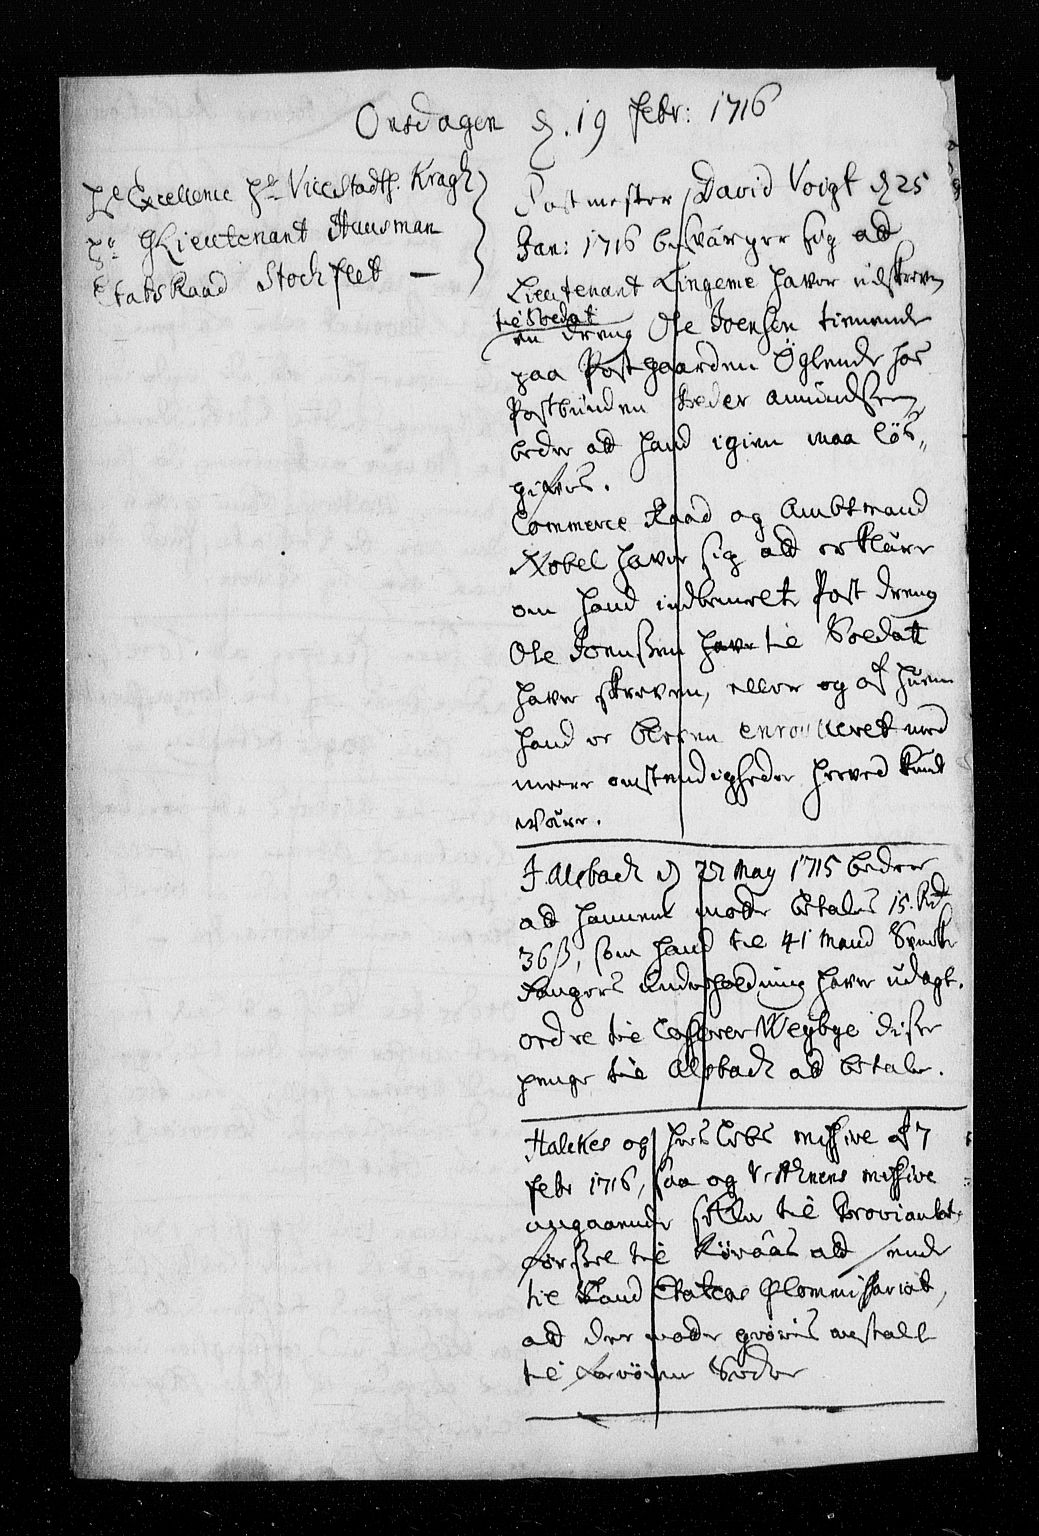 Onsdagen d. 19 Febr: 1716
Hr Excellence Hr ViceStadth. Kragh
Hr GLieutenant Hausman
EtatsRaad Stockfleth —
Postmester David Voigt d 25
Jan: 1716 besværger sig att
Lieutenant Lingeme haver udskreven
til Soldat
en dreng Ole Joensen tienende
paa Postgaarden Öglende hos
Postbunden Peder Amundsen
beder att hand igien maa løs,,
gifves.
Commerce Raad og Ambtmand
Nobel haver sig att erklære
om hand indbemelte Post dreng
Ole Joenssen have til Soldatt
haver skreven, eller og af huem
hand er bleven enroulleret med
meere omstendigheder herved kunde
være.
J. Alsbach d 22 May 1715 beder
att hannem motte betales 15. Rdr
36 ß, som hand til 41 Mand Svenske
Fangers underholdning haver udlagt.
ordre til Casserer Weybye disse
penge til Alsbach at betale.
Halckes og hers Lebs missive af 7
Febr 1716, saa og missive
angaaende til Proviant,
førsel til Röraas att sende
til Land Etatens GCommissariat,
att der motte giøres anstalt
til